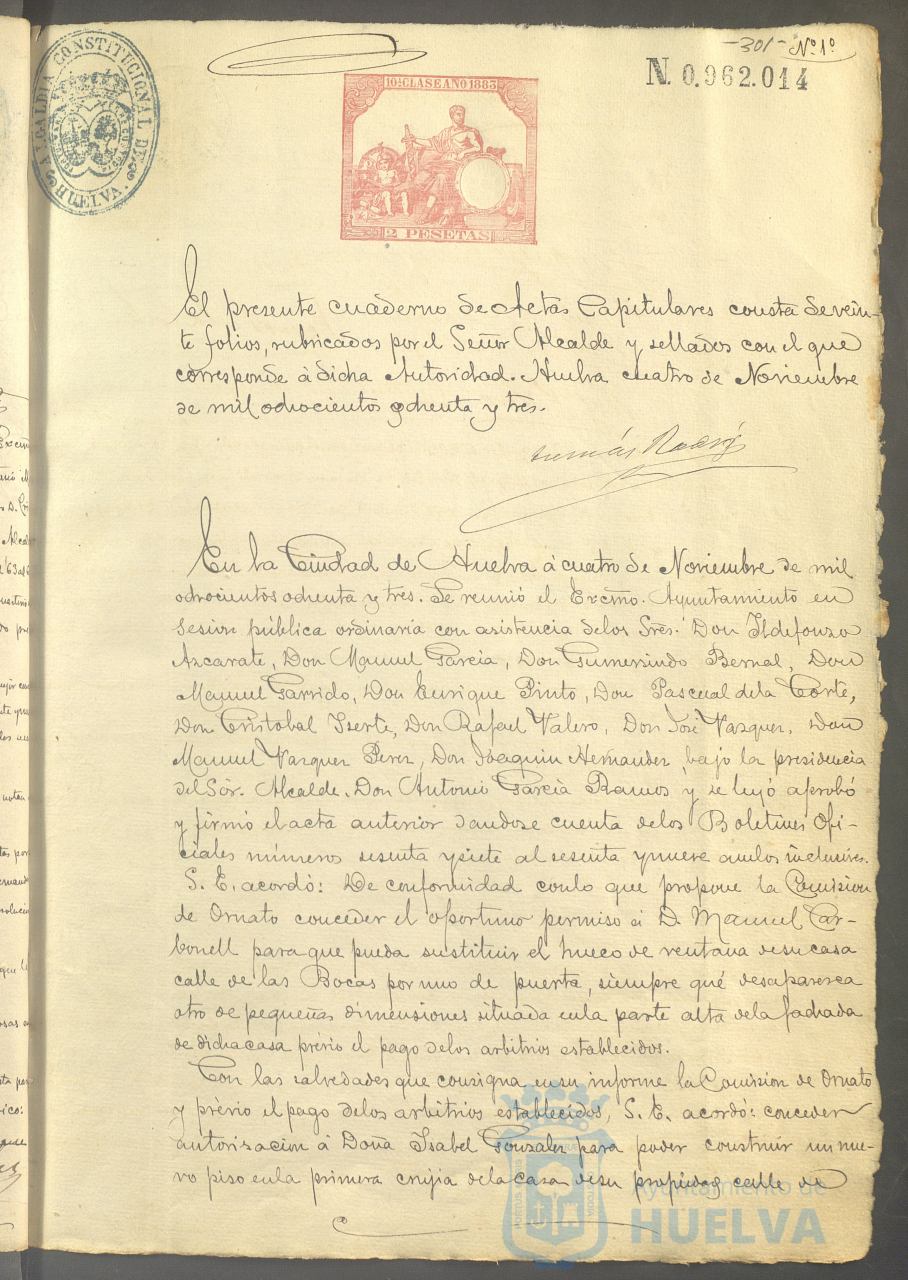 -301- Nº 1º
N. 0.962.014
ALCALDIA CONSTITUCIONAL DE HUELVA
10ª CLASE AÑO 1883
2 PESETAS
El presente cuaderno de Actas Capitulares consta de vein-
te folios, rubricados por el Señor Alcalde y sellados con el que
corresponde á dicha Autoridad. Huelva cuatro de Noviembre
de mil ochocientos ochenta y tres.
En la Ciudad de Huelva á cuatro de Noviembre de mil
ochocientos ochenta y tres. Se reunió el Excmo. Ayuntamiento en
sesion pública ordinaria con asistencia de los Sres. Don Ildefonzo
Azcarate, Don Manuel Garcia, Don Gumersindo Bernal, Don
Manuel Garrido, Don Enrique Pinto, Don Pascual de la Corte,
Don Cristobal Iserte, Don Rafael Valero, Don José Vazquez, Don
Manuel Vazquez Perez, Don Joaquin Hernandez, bajo la presidencia
del Sór. Alcalde, Don Antonio Garcia Ramos y se leyó aprobó
y firmó el acta anterior dandose cuenta de los Boletines Ofi-
ciales números sesenta y siete al sesenta y nueve ambos inclusives.
S. E. acordó: De conformidad con lo que propone la Comision
de Ornato conceder el oportuno permiso á D. Manuel Car-
bonell para que pueda sustituir el hueco de ventana de su casa
calle de las Bocas por uno de puerta, siempre qué desaparezca
otro de pequeñas dimensiones situada en la parte alta de la fachada
de dicha casa prévio el pago de los arbitrios establecidos.
Con las salvedades que consigna en su informe la Comision de Ornato
y prévio el pago de los arbitrios establecidos, S. E. acordó: conceder
autorizacion á Doña Isabel Gonzalez para poder construir un nue-
vo piso en la primera crujia de la casa de su propiedad calle de
Ayuntamiento de
HUELVA